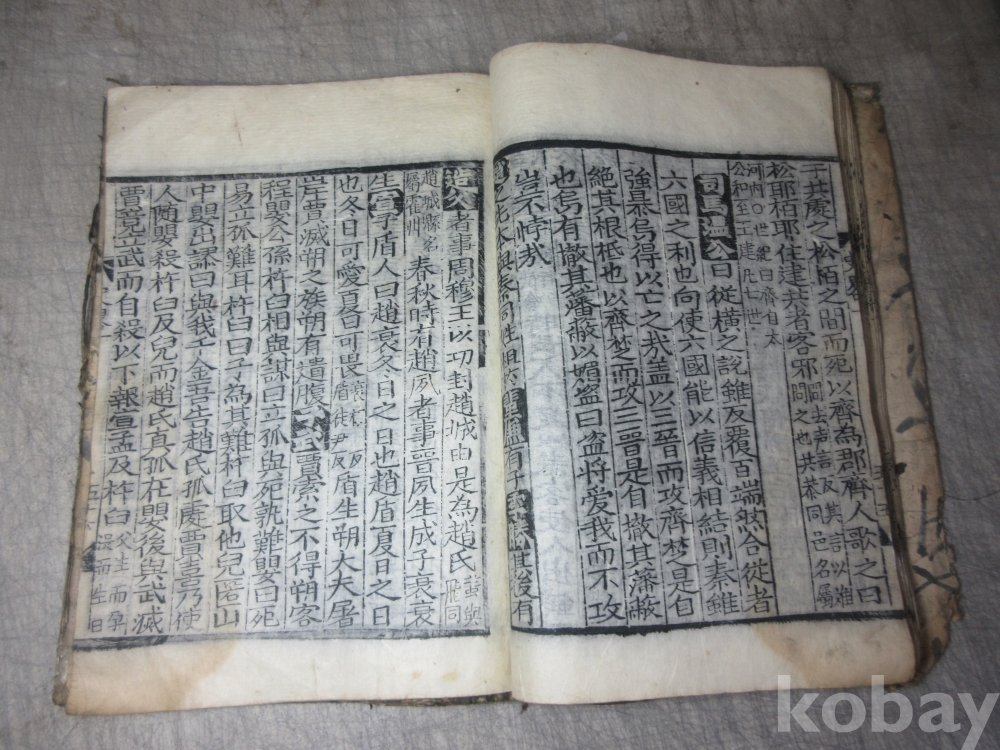 于共處之松栢之間而死以齊爲郡齊人歌之曰
松耶栢耶住建共者客邪
河内〇世紀曰齊自太
公和至王建凡七世
司馬溫公曰從橫之說雖反覆百端然合從者
六國之利也向使六國能以信義相結則秦雖
強暴烏得以亡之哉盖以三晉而攻齊楚是自
絶其根柢也以齊楚而攻三晉是自撤其藩蔽
也烏有撤其藩蔽以媚盜曰盜將愛我而不攻
豈不悖哉
與秦同姓
其後有
造父者事周穆王以功封趙城由是爲趙氏
趙城縣名
屬霍州
春秋時有趙夙者事晉夙生成子衰衰
生宣子盾人曰趙衰冬日之日也趙盾夏日之日
也冬日可愛夏日可畏
盾生朔大夫屠
岸賈滅朔之族朔有遺腹
賈索之不得朔客
程嬰公孫杵臼相與謀曰立孤與死孰難嬰曰死
易立孤難耳杵臼曰子為其難杵臼取他兒匿山
中嬰出謬曰與我千金吾告趙氏孤處賈喜乃使
人随嬰殺杵臼及兒而趙氏真孤在嬰後與武滅
賈竟立武而自殺以下報宣孟及杵臼
kobay